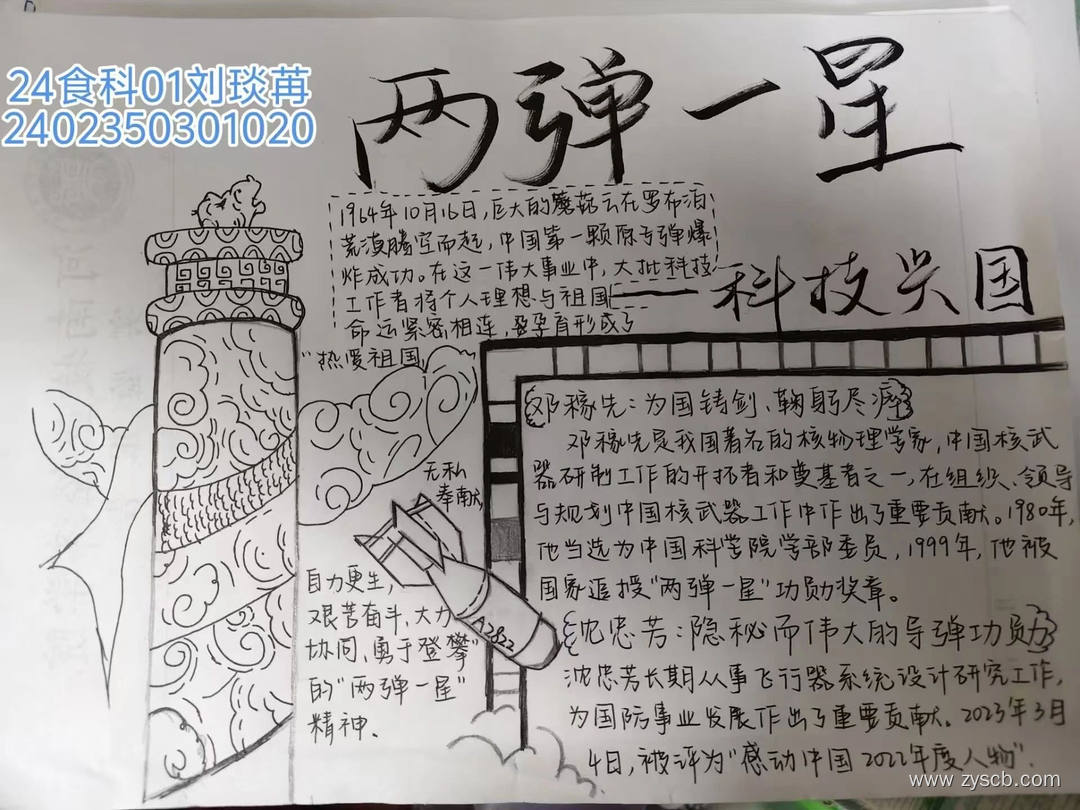 24食科01刘琰苒
2402350301020
两弹一星
1964年10月16日,巨大的蘑菇云在罗布泊
荒漠腾空而起,中国第一颗原子弹爆
炸成功。在这一伟大事业中,大批科技
工作者将个人理想与祖国
命运紧密相连,孕育形成了
"热爱祖国,
无私
奉献,
自力更生,
艰苦奋斗,大力
协同,勇于登攀"
的"两弹一星"
精神.
——科技兴国
邓稼先:为国铸剑、鞠躬尽瘁
邓稼先是我国著名的核物理学家,中国核武
器研制工作的开拓者和奠基者之一,在组织、领导
与规划中国核武器工作中作出了重要贡献。1980年,
他当选为中国科学院学部委员,1999年,他被
国家追授"两弹一星"功勋奖章。
沈忠芳:隐秘而伟大的导弹功勋
沈忠芳长期从事飞行器系统设计研究工作,
为国防事业发展作出了重要贡献。2023年3月
4日,被评为"感动中国2022年度人物".
A2822
www.zyscb.com